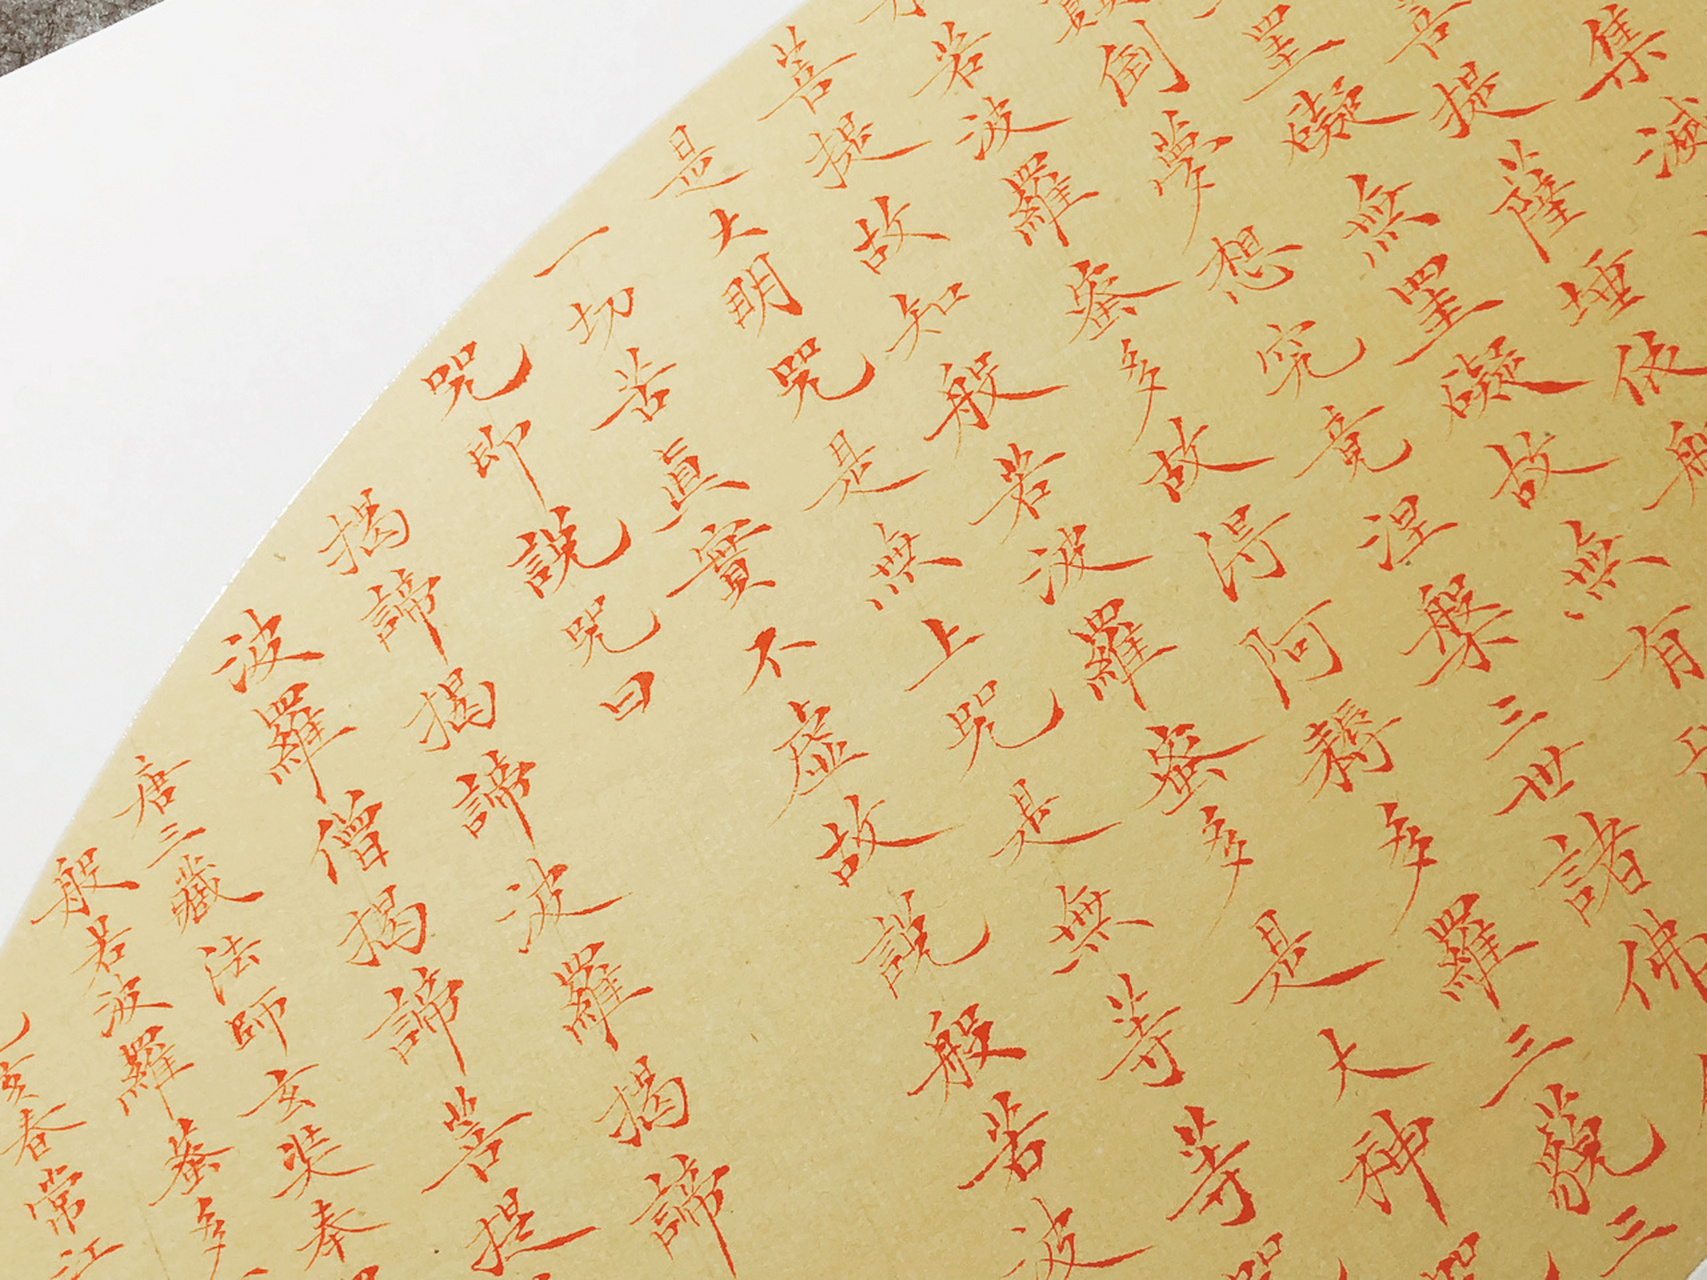 集滅
菩提薩埵依般
罣礙無罣礙故無有
倒夢想究竟涅槃三世諸佛
若波羅蜜多故得阿耨多羅三藐三
菩提故知般若波羅蜜多是大神咒
是大明咒是無上咒是無等等咒
一切苦真實不虛故說般若波
咒即說咒曰
揭諦揭諦波羅揭諦
波羅僧揭諦菩提
唐三藏法師玄奘奉
般若波羅蜜多
亥春常江